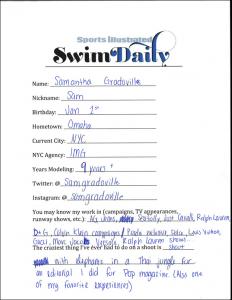 Sports Illustrated
SwimDaily
Name: Samantha Gradoville
Nickname: Sam
Birthday: Jan 1st
Hometown: Omaha
Current City: NYC
NYC Agency: IMG
Years Modeling: 9 years
Twitter: @ Samgradoville
Instagram: @ Samgradoville
You may know my work in (campaigns, TV appearances,
runway shows, etc.) Just Cavalli, Ralph Lauren,
D+G, Calvin Klein campaigns / Prada exclusive Louis Vuitton,
Gucci, Marc Jacobs Versace Ralph Lauren shows
The craziest thing I've ever had to do on a shoot is shoot
with elephants in a Thai jungle for
an editorial I did for Pop magazine (Also one
of my favorite experiences)